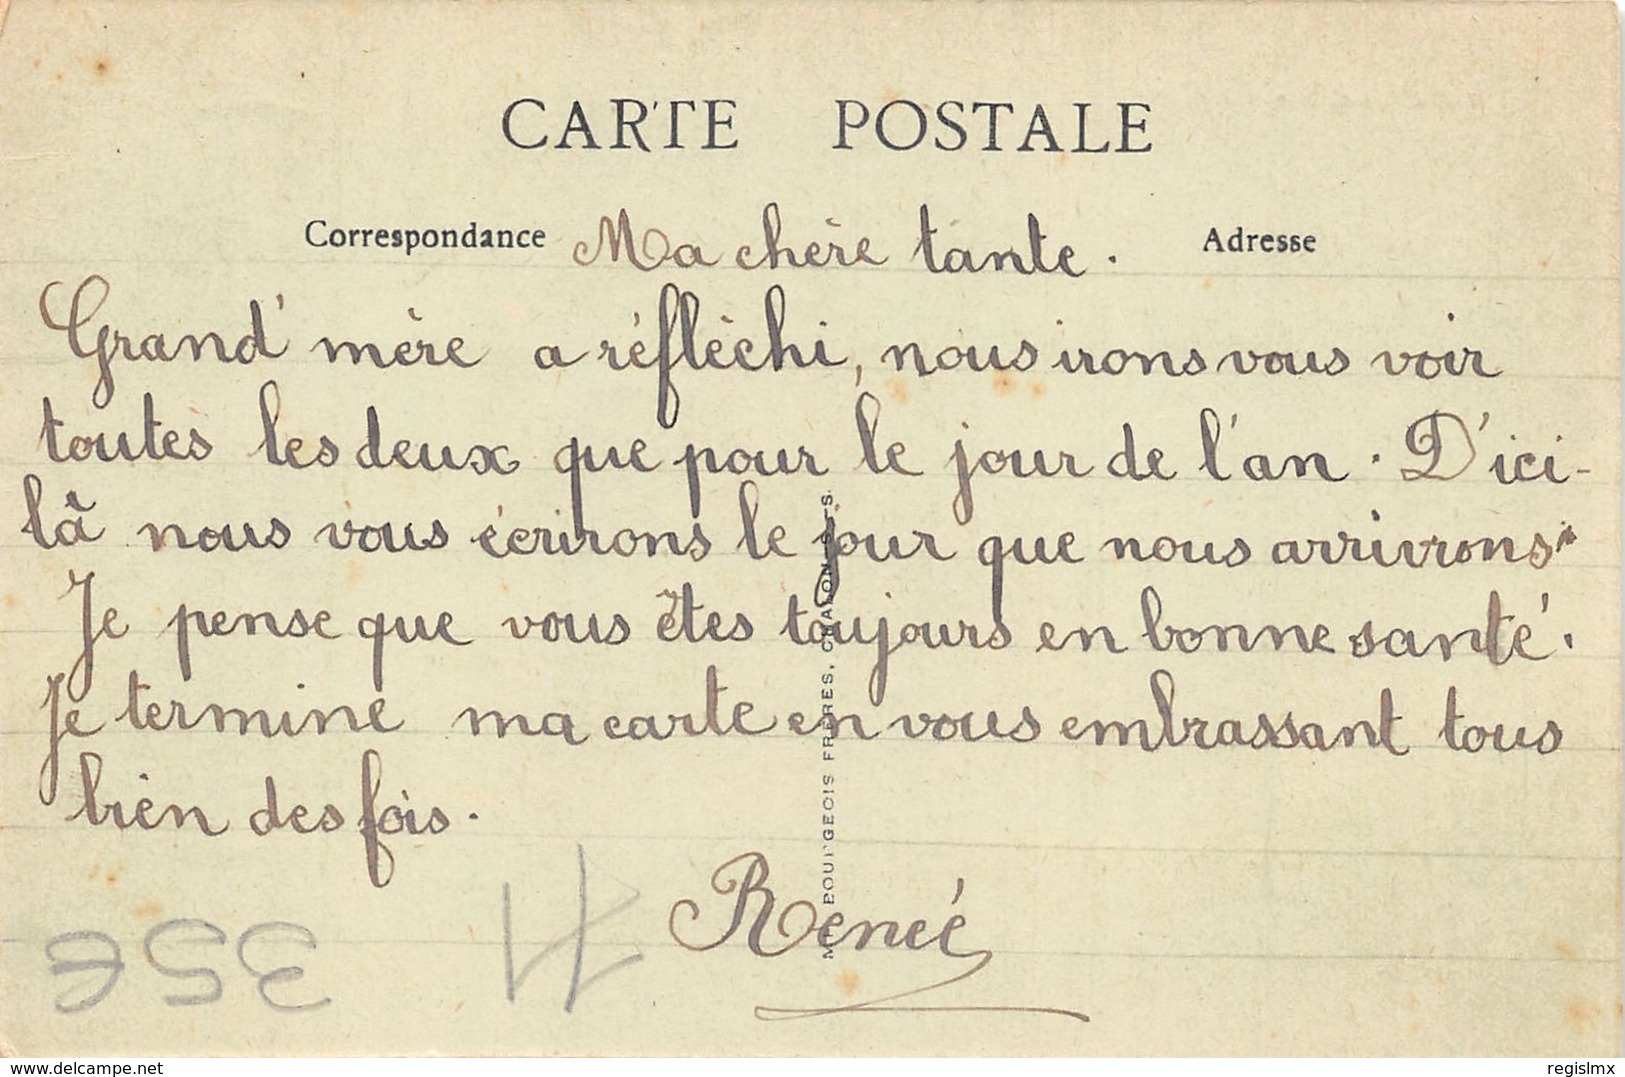 CARTE POSTALE
Correspondance Ma chère tante. Adresse
Grand'mère a réflèchi, nous irons vous voir
toutes les deux que pour le jour de l'an. D'ici-
là nous vous écrirons le jour que nous arrivrons.
Je pense que vous êtes toujours en bonne santé.
Je termine ma carte en vous embrassant tous
bien des fois.
Reneé
35€
71
POURGEOIS FRÈRES,
www.delcampe.net
regislmx